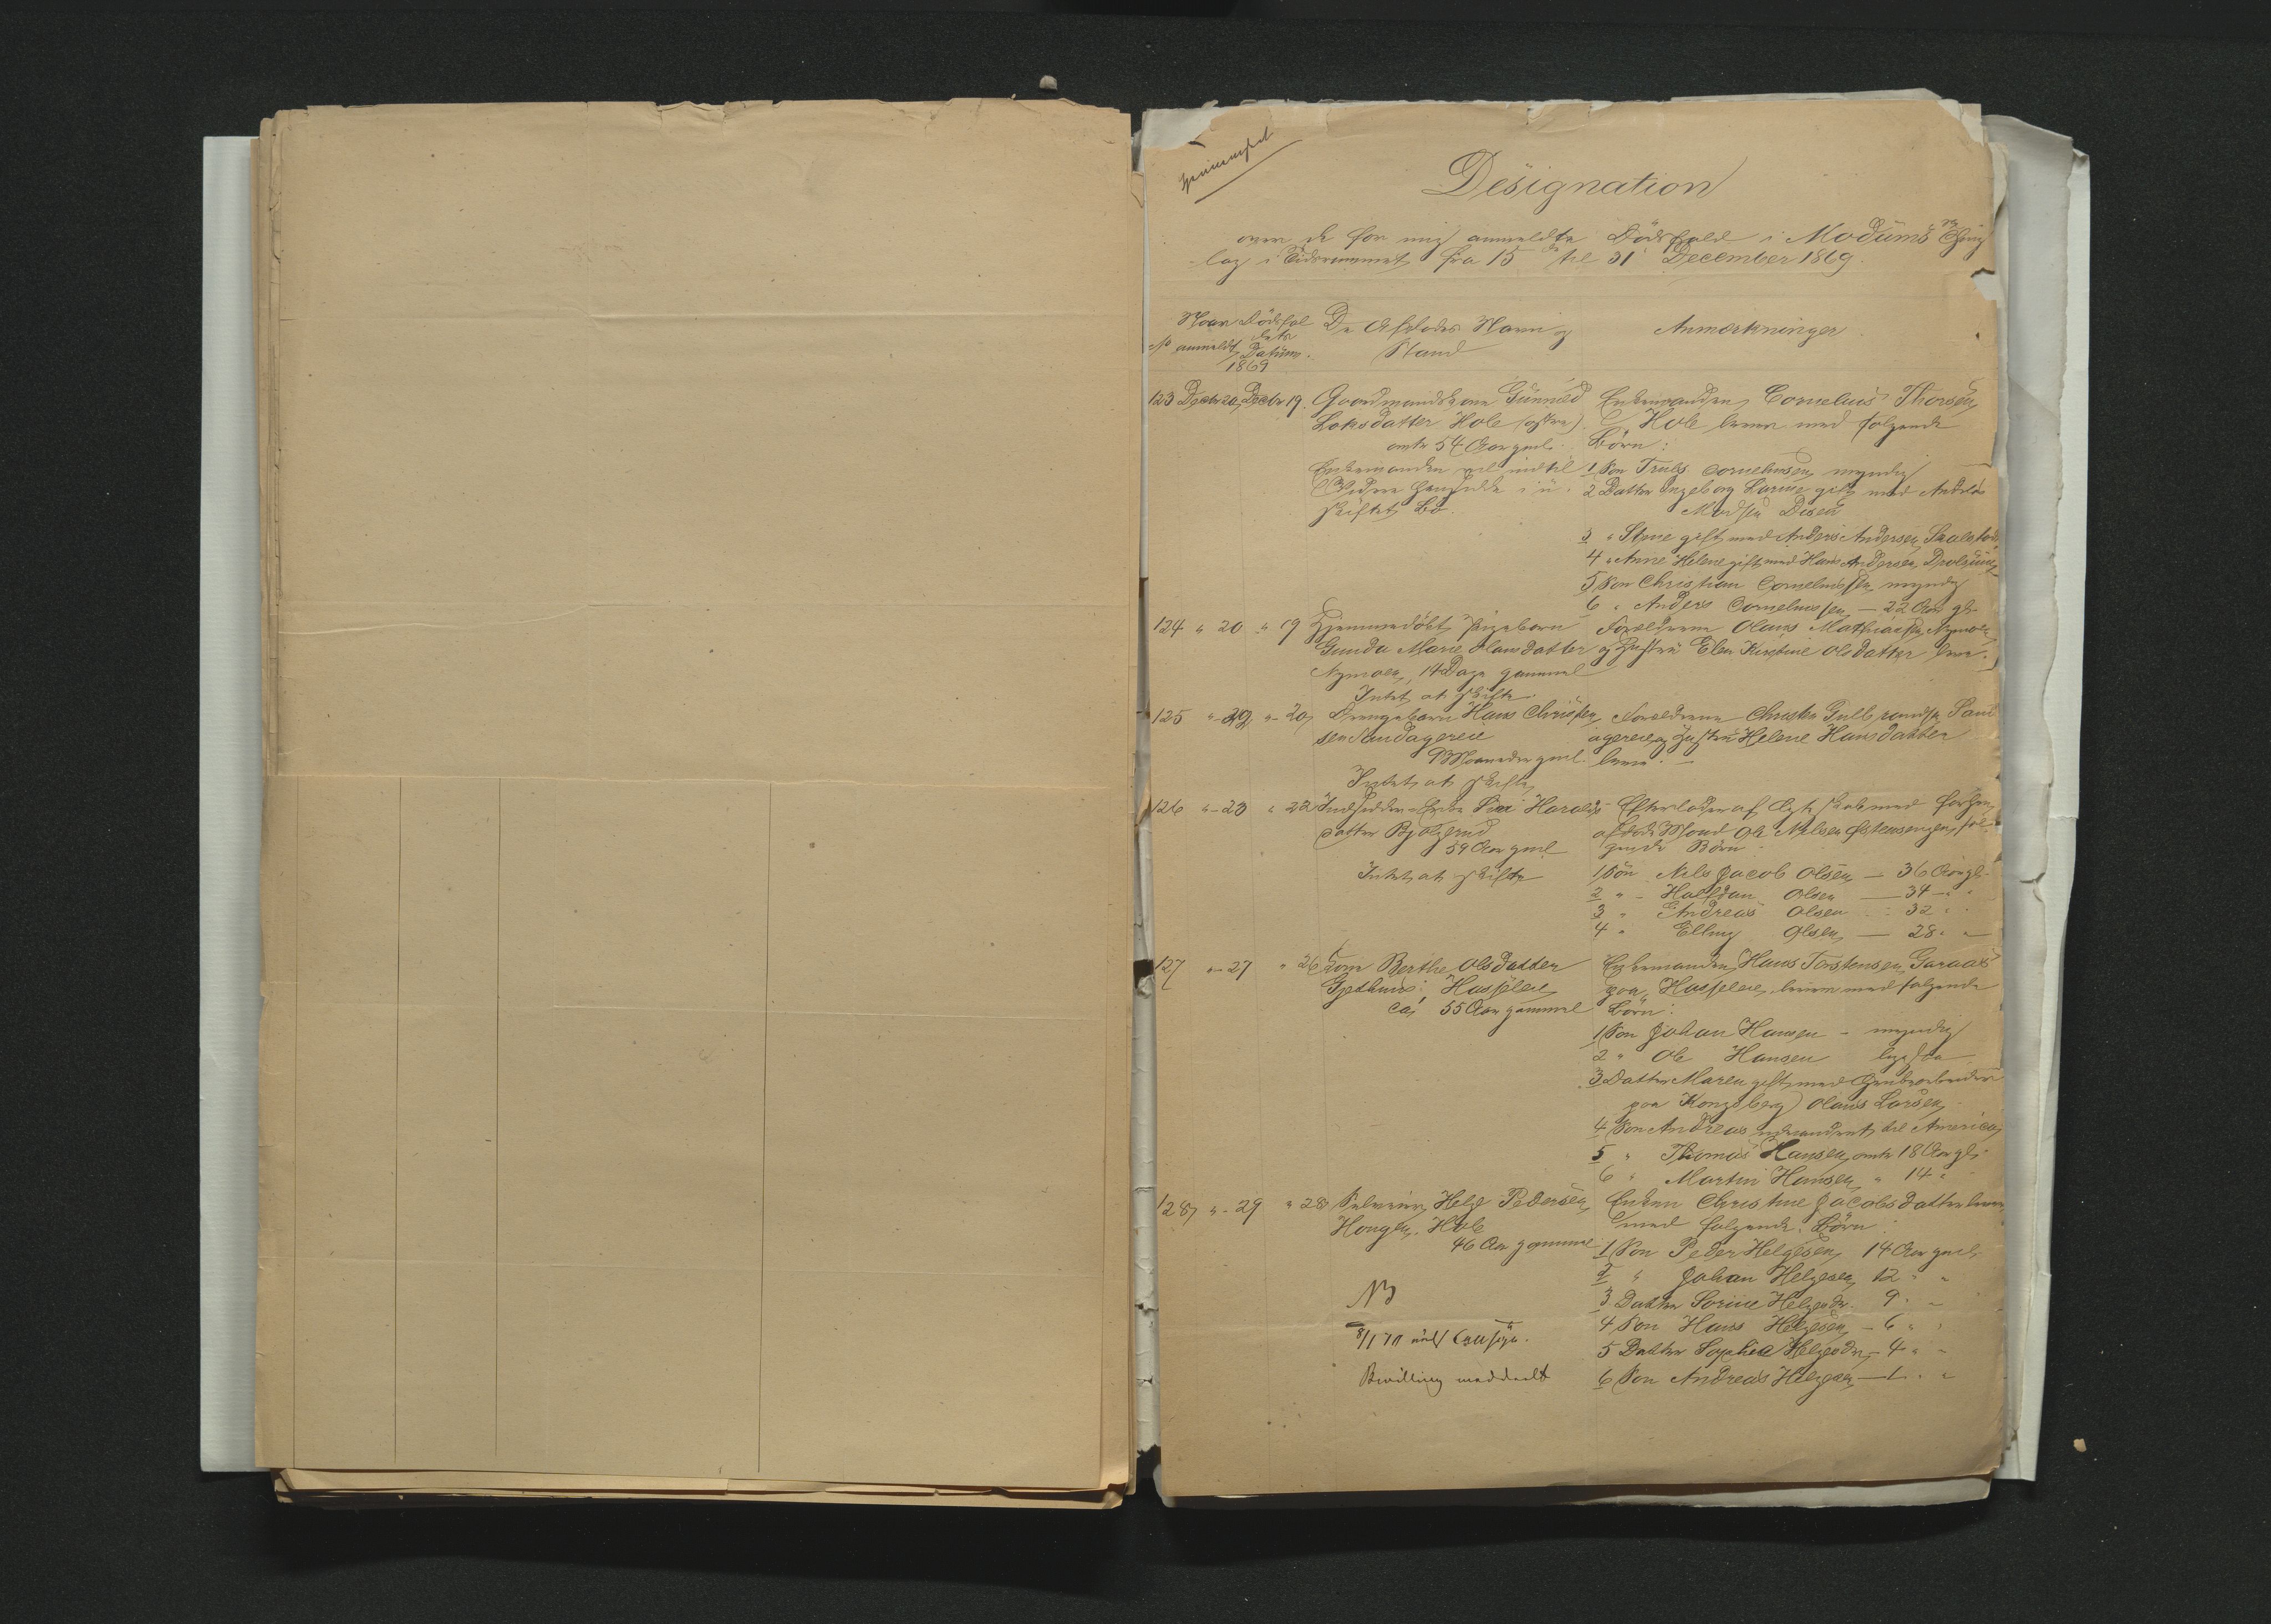 Designation
over de for mig anmeldte Dödsfald i Modums Thing
lag i Tidsrummet fra 15de til 31 December 1869.
No
Naar anmeldt
Dödsfaldets Datum.
1869
De Afdødes Navn og Stand
Anmærkninger
123 Decbr 20, Decbr 19.
Gaardmandskone Gunnild
Loksdatter Hole (østre).
omtr 54 Aar gml.
Enkemanden vil indtil
Videre hensidde i u-
skiftet Bo.
Enkemanden Cornelius Thorsen
Hole lever med følgende
Börn:
1 Søn Truls Corneliusen, myndig
2 Datter Ingeborg Karine gift med Anders
Madsen Disen
3 " Stine gift med Anders Andersen
4 " Anne Helene gift med Hans Andersen
5 Søn Christian Corneliussen, myndig
6 " Anders Corneliussen — 22 Aar gl.
124 " 20 " 19
Hjemmedöbt Pigebarn
Gunda Marie Olausdatter
Nymoen, 14 Dage gammel
Intet at skifte.
Forældrene Olaus Mathiassen Nymoen
og Hustru Elen Kirstine Olsdatter lever.
125
" 20
Drengebarn Hans Christen
sen Sandagereie
Maaneder gml.
Intet at skifte
Forældrene Christen Gulbrandsen Sand
agereie og Hustru Helene Hansdatter
lever. —
126 " - 23 " 22
Inderst Enke Siri Haralds
datter Bjölgerud
59 Aar gml
Intet at skifte
Efterlader af Ægteskab med forhen
afdøde Mand Ole Nilsen Østensengen, föl-
gende Börn
1 Sön Nils Jacob Olsen — 36 Aar gl.
2 " - Halfdan Olsen — 34 - "
3 " Andreas Olsen — 32 "
4 " Elling Olsen — 28 " "
127 " - 27 " 26
Kone Berthe Olsdatter
Gjethuus: Hasseleie
ca 55 Aar gammel
Enkemanden Hans Torstensen Garaas
paa Hasseleie, lever med følgende
Börn:
1 Søn Johan Hansen - myndig
2 " Ole Hansen ligesaa
3 Datter Maren gift med Grubearbeider
paa Kongsberg Olaus Larsen
4 Søn Andreas udvandret til America
5 " Thomas Hansen, omtr 18 Aar gl.
6 " Martin Hansen " 14 "
128 " - 29 " 28
Selveier Helge Pedersen
Hole
46 Aar gammel
NB
8/1 70
Bevilling meddeelt
Enken Christine Jacobsdatter lever
med følgende Börn:
1 Søn Peder Helgesen, 14 Aar gml.
2 " Johan Helgesen 12 " "
3 Datter Sorine Helgesdr. 9 " "
4 Søn Hans Helgesen - 6 " "
5 Datter Sophie Helgesdr. - 4 " "
6 Søn Andreas Helgesen — 1 " "